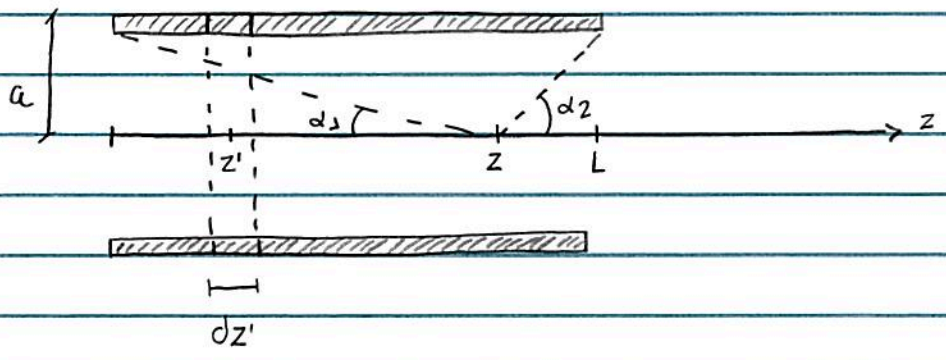 a
α1 α2 z
z' z L
dz'